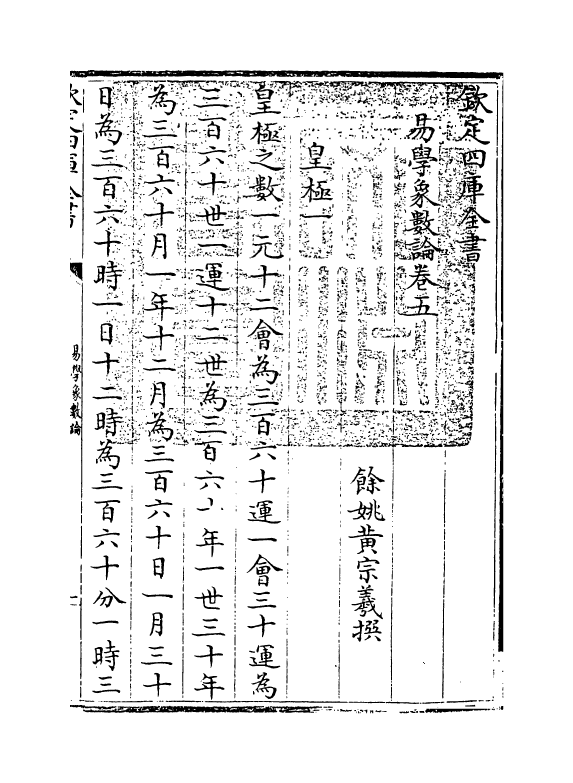 欽定四庫全書
易學象數論卷五
餘姚黃宗羲撰
皇極一
皇極之數一元十二會為三百六十運一會三十運為
三百六十世一運十二世為三百六十年一世三十年
為三百六十月一年十二月為三百六十日一月三十
日為三百六十時一日十二時為三百六十分一時三
易學象數論